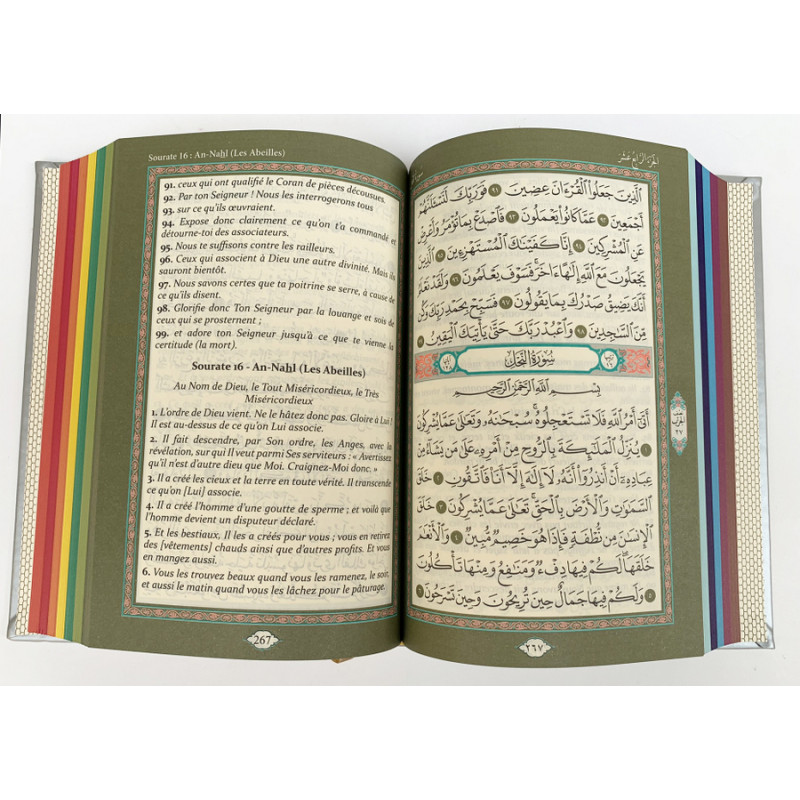 Sourate 16 : An-Nahl (Les Abeilles)
91. ceux qui ont qualifié le Coran de pièces décousues.
92. Par ton Seigneur ! Nous les interrogerons tous
93. sur ce qu'ils œuvraient.
94. Expose donc clairement ce qu'on t'a commandé et
détourne-toi des associateurs.
95. Nous te suffisons contre les railleurs.
96. Ceux qui associent à Dieu une autre divinité. Mais ils
sauront bientôt.
97. Nous savons certes que ta poitrine se serre, à cause de
ce qu'ils disent.
98. Glorifie donc Ton Seigneur par la louange et sois de
ceux qui se prosternent ;
99. et adore ton Seigneur jusqu'à ce que te vienne la
certitude (la mort).
Sourate 16 - An-Nahl (Les Abeilles)
Au Nom de Dieu, le Tout Miséricordieux, le Très
Miséricordieux
1. L'ordre de Dieu vient. Ne le hâtez donc pas. Gloire à Lui !
Il est au-dessus de ce qu'on Lui associe.
2. Il fait descendre, par Son ordre, les Anges, avec la
révélation, sur qui Il veut parmi Ses serviteurs : « Avertissez
qu'il n'est d'autre dieu que Moi. Craignez-Moi donc. »
3. Il a créé les cieux et la terre en toute vérité. Il transcende
ce qu'on [Lui] associe.
4. Il a créé l'homme d'une goutte de sperme ; et voilà que
l'homme devient un disputeur déclaré.
5. Et les bestiaux, Il les a créés pour vous ; vous en
retirez des [vêtements] chauds ainsi que d'autres profits. Et vous
en mangez aussi.
6. Vous les trouvez beaux quand vous les ramenez, le soir,
et aussi le matin quand vous les lâchez pour le pâturage.
267
الجزء الرابع عشر
ٱلَّذِينَ جَعَلُوا۟ ٱلْقُرْءَانَ عِضِينَ ٩١ فَوَرَبِّكَ لَنَسْـَٔلَنَّهُمْ
أَجْمَعِينَ ٩٢ عَمَّا كَانُوا۟ يَعْمَلُونَ ٩٣ فَٱصْدَعْ بِمَا تُؤْمَرُ وَأَعْرِضْ
عَنِ ٱلْمُشْرِكِينَ ٩٤ إِنَّا كَفَيْنَـٰكَ ٱلْمُسْتَهْزِءِينَ ٩٥ ٱلَّذِينَ
يَجْعَلُونَ مَعَ ٱللَّهِ إِلَـٰهًا ءَاخَرَ فَسَوْفَ يَعْلَمُونَ ٩٦ وَلَقَدْ نَعْلَمُ
أَنَّكَ يَضِيقُ صَدْرُكَ بِمَا يَقُولُونَ ٩٧ فَسَبِّحْ بِحَمْدِ رَبِّكَ وَكُن
مِّنَ ٱلسَّـٰجِدِينَ ٩٨ وَٱعْبُدْ رَبَّكَ حَتَّىٰ يَأْتِيَكَ ٱلْيَقِينُ ٩٩
سُورَةُ النَّحْلِ
بِسْمِ ٱللَّهِ ٱلرَّحْمَـٰنِ ٱلرَّحِيمِ
أَتَىٰٓ أَمْرُ ٱللَّهِ فَلَا تَسْتَعْجِلُوهُ سُبْحَـٰنَهُۥ وَتَعَـٰلَىٰ عَمَّا يُشْرِكُونَ
١ يُنَزِّلُ ٱلْمَلَـٰٓئِكَةَ بِٱلرُّوحِ مِنْ أَمْرِهِۦ عَلَىٰ مَن يَشَآءُ مِنْ
عِبَادِهِۦٓ أَنْ أَنذِرُوٓا۟ أَنَّهُۥ لَآ إِلَـٰهَ إِلَّآ أَنَا۠ فَٱتَّقُونِ ٢ خَلَقَ
ٱلسَّمَـٰوَٰتِ وَٱلْأَرْضَ بِٱلْحَقِّ تَعَـٰلَىٰ عَمَّا يُشْرِكُونَ ٣ خَلَقَ
ٱلْإِنسَـٰنَ مِن نُّطْفَةٍ فَإِذَا هُوَ خَصِيمٌ مُّبِينٌ ٤ وَٱلْأَنْعَـٰمَ
خَلَقَهَا لَكُمْ فِيهَا دِفْءٌ وَمَنَـٰفِعُ وَمِنْهَا تَأْكُلُونَ
٥ وَلَكُمْ فِيهَا جَمَالٌ حِينَ تُرِيحُونَ وَحِينَ تَسْرَحُونَ ٦
٢٦٧